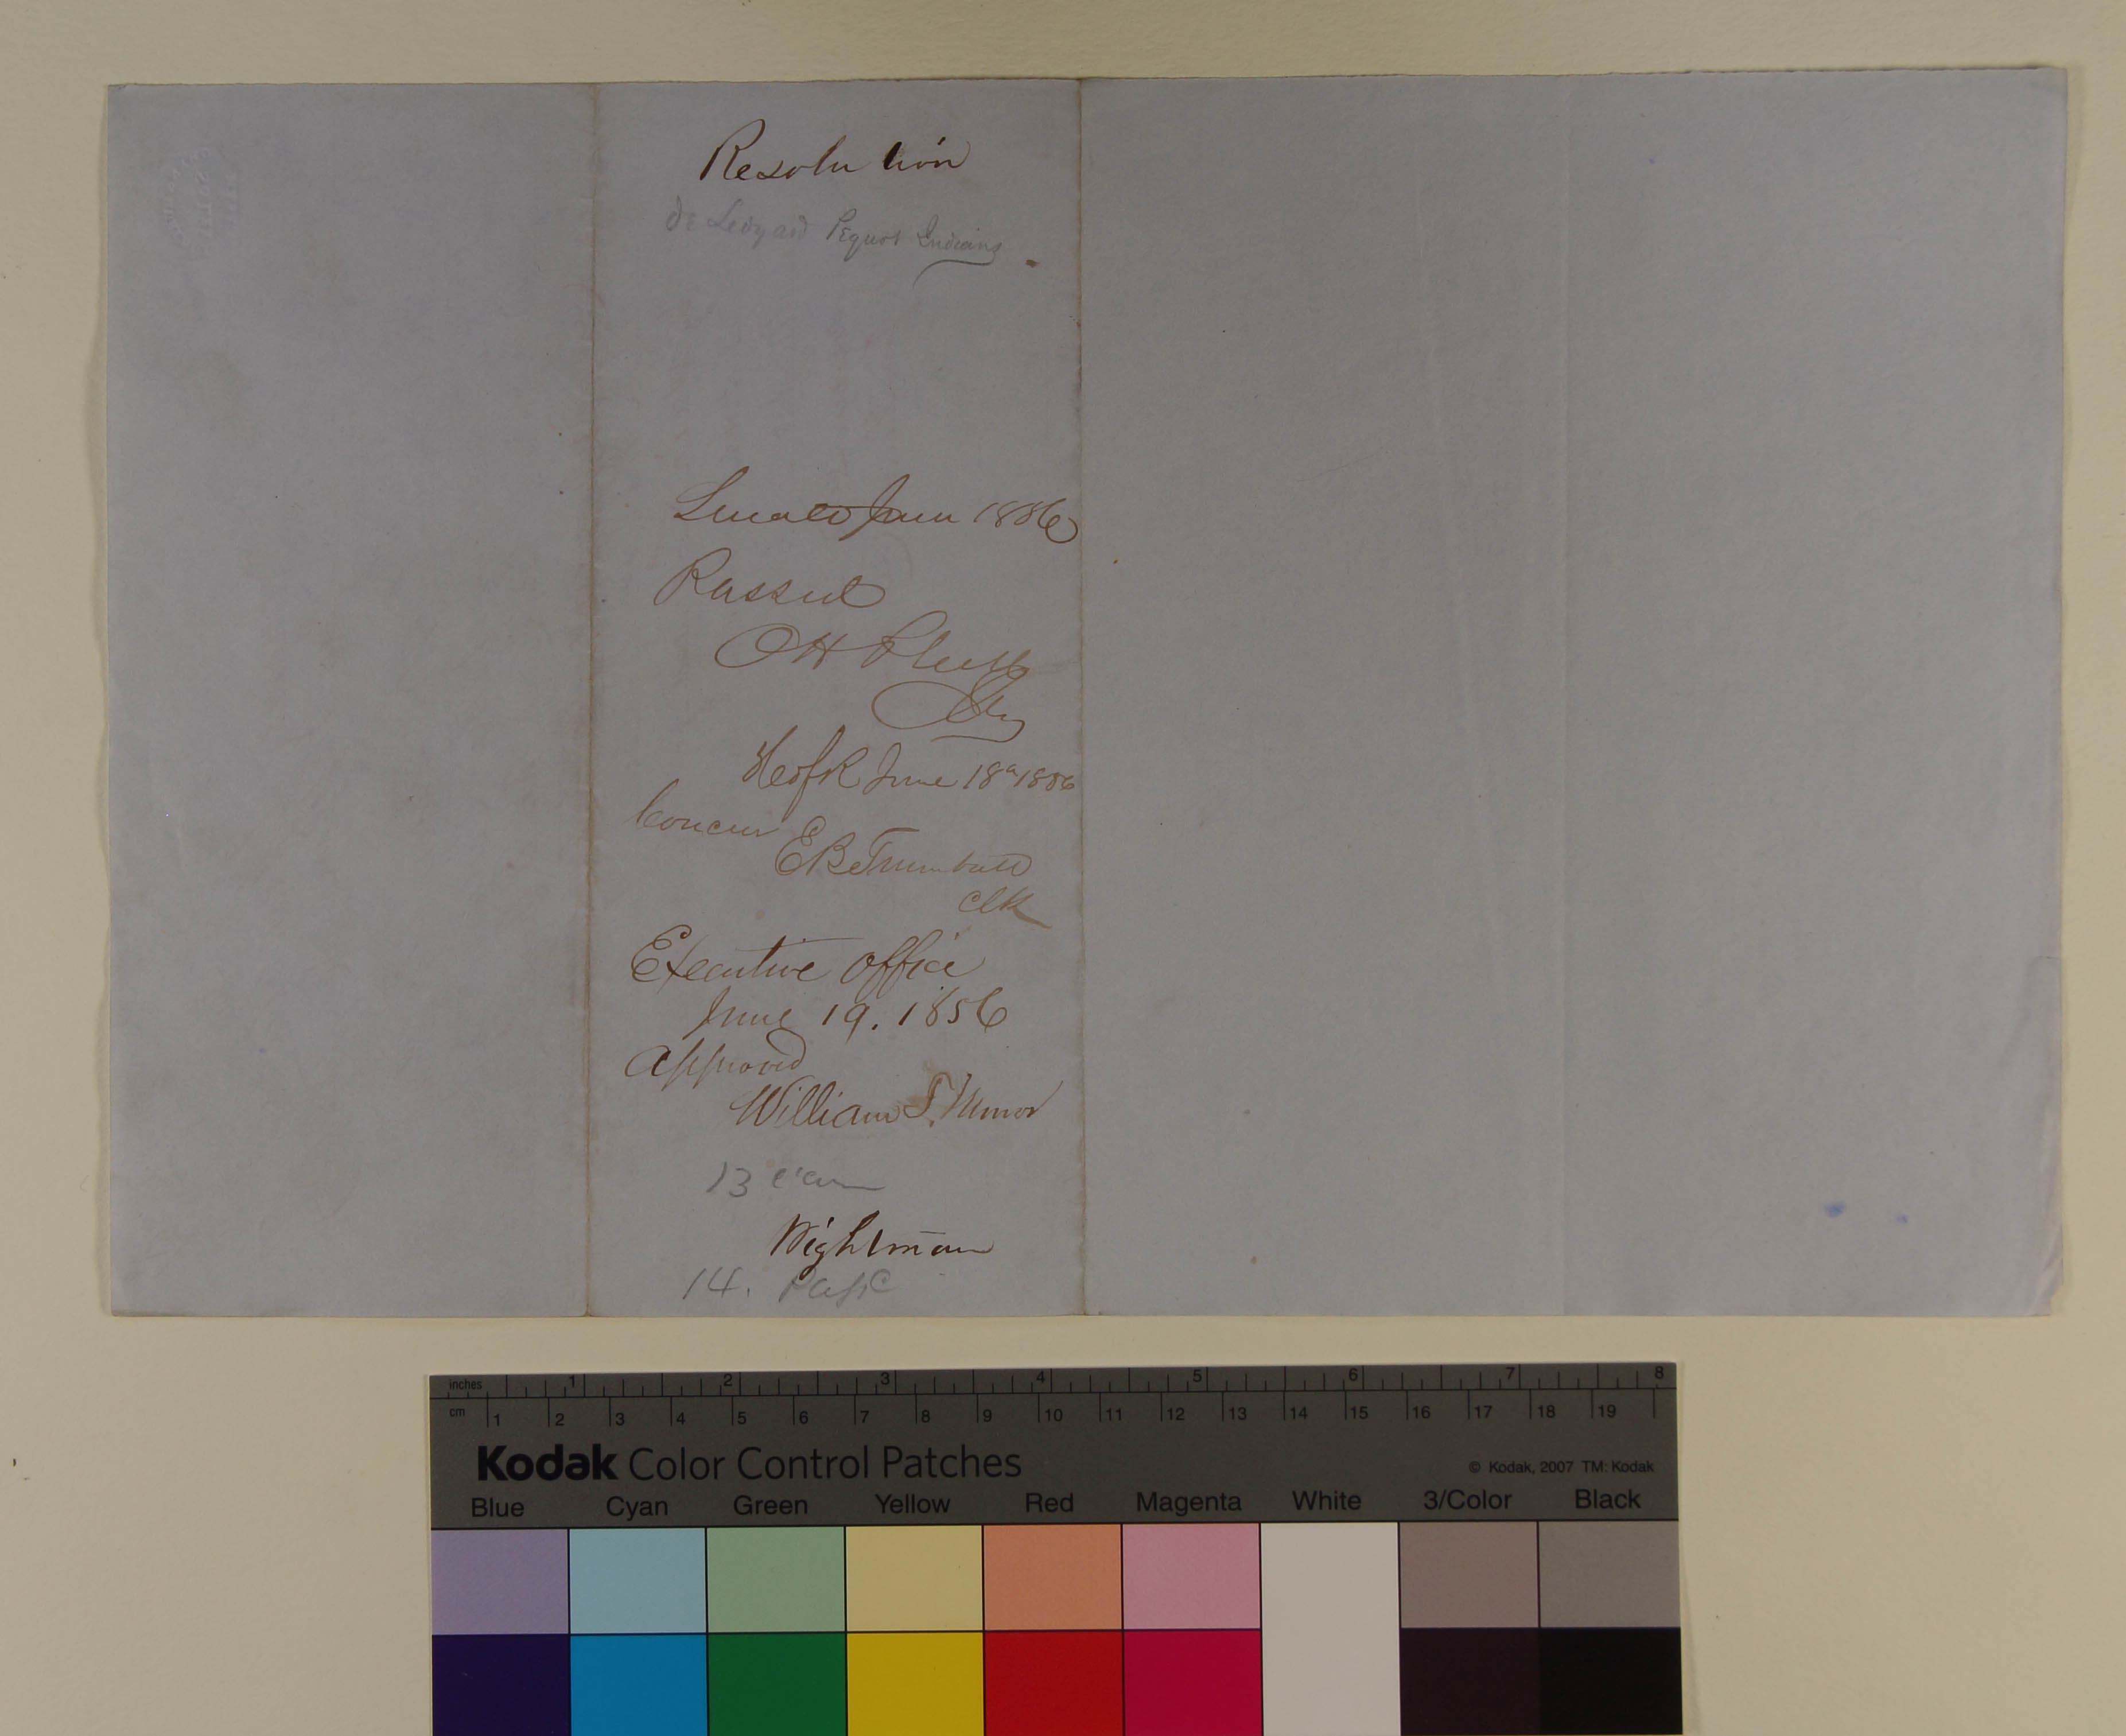 Resolution
de Ledyard Pequot Indians
Senate June 1856
Passed
OH Platt
Clk
H of R June 18th 1856
Concur
E B Trumbull
Clk
Executive Office
June 19. 1856
Approved
William T. Minor
13
Wightman
14.
inches 1 2 3 4 5 6 7 8
cm 1 2 3 4 5 6 7 8 9 10 11 12 13 14 15 16 17 18 19
Kodak Color Control Patches
© Kodak, 2007 TM: Kodak
Blue Cyan Green Yellow Red Magenta White 3/Color Black